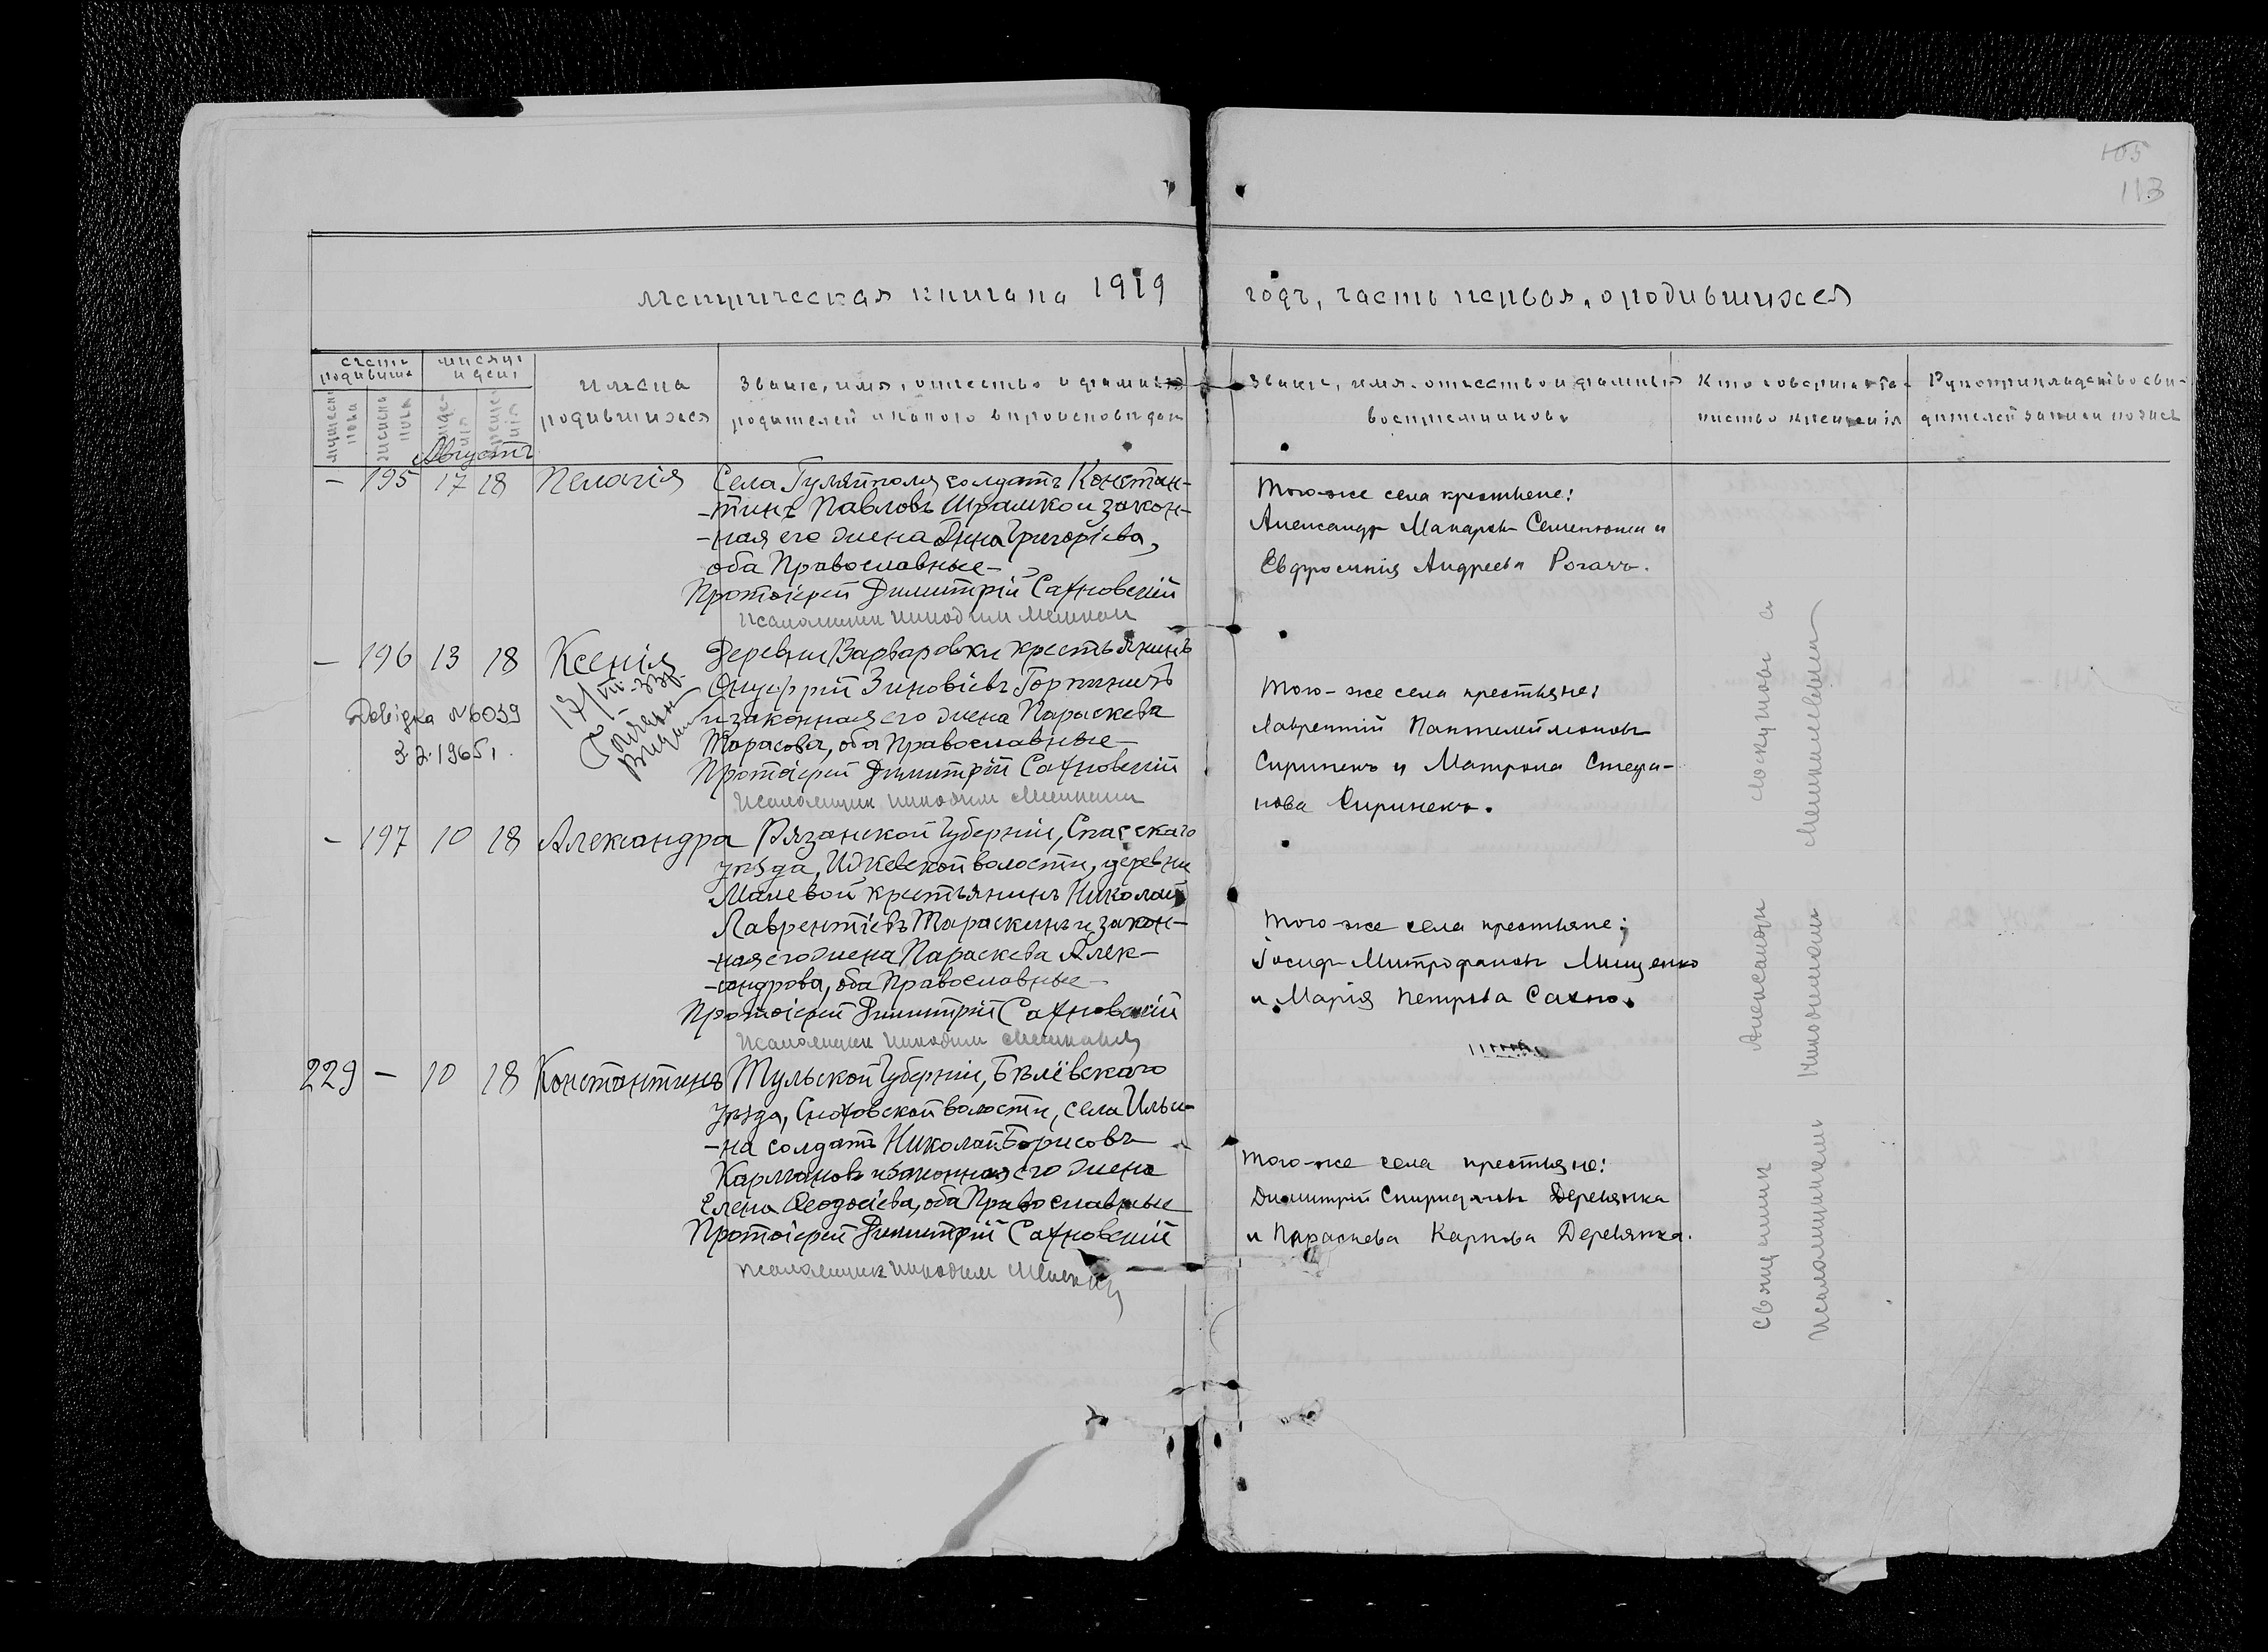 105
113
метрическая книга на 1919 годъ, часть первая, о родившихся
счетъ родивших.
мѣсяцъ и день
мужеска пола
женска пола
рожденія
крещенія
имена родившихся
Званіе, имя, отчество и фамилія родителей и какого вѣроисповѣдан.
Званіе, имя, отчество и фамилія воспріемниковъ
Кто совершалъ таинство крещенія
Рукоприкладство свидѣтелей записи
Августъ
– 195 17 18 Пелагія
Села Гуляйполя солдатъ Констан-
-тинъ Павловъ Шрамко и закон-
-ная его жена Анна Григоріева,
оба Православные –
Протоіерей Димитрій Сахновскій
Псаломщик Никодим
Того-же села крестьяне:
Александръ Макаровъ и
Евфросинія Андреева Рогачъ.
– 196 13 18 Ксенія
Довідка № 6039
3.2.1965 г.
Деревни Варваровки крестьянинъ
Онуфрій Зиновіевъ
и законная его жена Параскева
Тарасова, оба Православные –
Протоіерей Димитрій Сахновскій
Псаломщик Никодим
Того-же села крестьяне:
Лаврентій Пантелеймоновъ
Сиринекъ и Матрона Стефа-
нова Сиринекъ.
– 197 10 18 Александра
Рязанской Губерніи, Спасскаго
уѣзда, Ижевской волости, деревни
Малевой крестьянинъ Николай
Лаврентіевъ Тараскинъ и закон-
-ная его жена Параскева Алек-
-сандрова, оба Православные –
Протоіерей Димитрій Сахновскій
Псаломщик Никодим
Того-же села крестьяне:
Іосифъ Митрофановъ Мищенко
и Марія Петрова Сахно.
229 – 10 18 Константинъ
Тульской Губерніи, Бѣлёвскаго
уѣзда, волости, села Ильи-
-на солдатъ Николай Борисовъ
Кармановъ и законная его жена
Елена Ѳеодосіева, оба Православные
Протоіерей Димитрій Сахновскій
псаломщик Никодим
Того-же села крестьяне:
Димитрій Спиридоновъ Деревянка
и Параскева Карпова Деревянка.
Священник Александр съ
Псаломщиком Никодимом